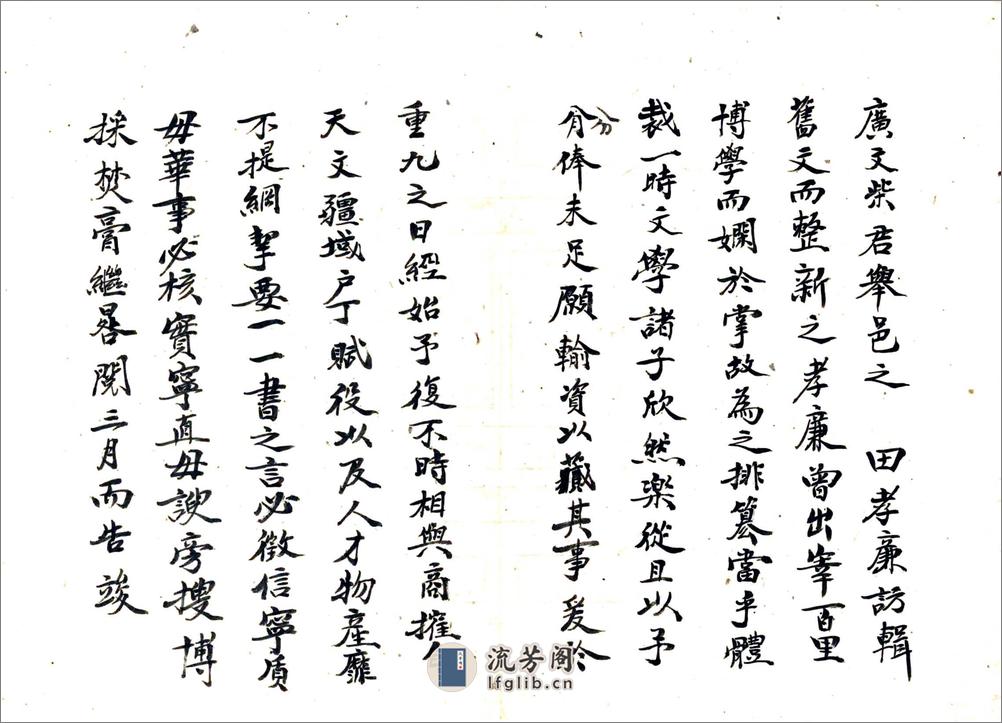 廣文柴君舉邑之　田孝廉訪輯
舊文而整新之孝廉曾出宰百里
博學而嫻於掌故為之排纂當乎體
裁一時文學諸子欣然樂從且以予
分
俸未足願輸資以蕆其事爰於
重九之日經始予復不時相與商搉凡
天文疆域戶丁賦役以及人才物產靡
不提綱挈要一一書之言必徵信寧質
毋華事必核實寧直毋諛旁搜博
採焚膏繼晷閱三月而告竣
流芳阁
lfglib.cn